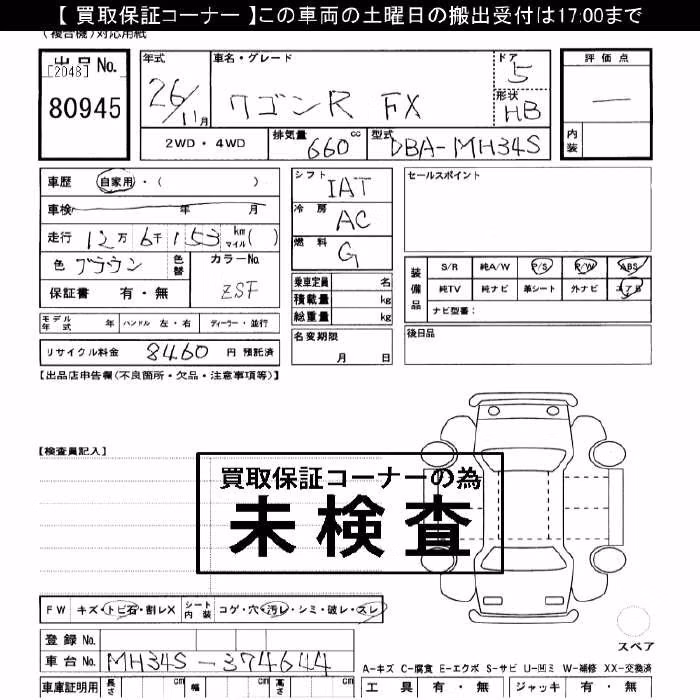 【 買取保証コーナー 】この車両の土曜日の搬出受付は17:00まで
(複合機)対応用紙
出品No.
[2048]
80945
年式
26/11月
車名・グレード
ワゴンR FX
ドア
5
形状
HB
評価点
—
内装
2WD・4WD
排気量 660 cc
型式 DBA-MH34S
車歴 自家用・( )
車検 年 月
走行 12万6千153 km マイル( )
色 ブラウン 色替
カラーNo. ZSF
保証書 有・無
シフト IAT
冷房 AC
燃料 G
乗車定員 名
積載量 kg
総重量 kg
セールスポイント
装備品
S/R 純A/W P/S P/W ABS
純TV 純ナビ 革シート 外ナビ エアB
ナビ型番:
モデル年式 年 ハンドル 左・右 ディーラー・並行
名変期限
月 日
後日品
リサイクル料金 8460 円 預託済
【出品店申告欄(不良箇所・欠品・注意事項等)】
【検査員記入】
買取保証コーナーの為
未検査
FW キズ・トビ石・割レX シート内装 コゲ・穴・汚レ・シミ・破レ・スレ
登録 No.
車台No. MH34S-374644
車庫証明用 長さ cm 幅 cm 高さ cm
スペア
A-キズ C-腐食 E-エクボ S-サビ U-凹ミ W-補修 XX-交換済
工具 有・無 ジャッキ 有・無